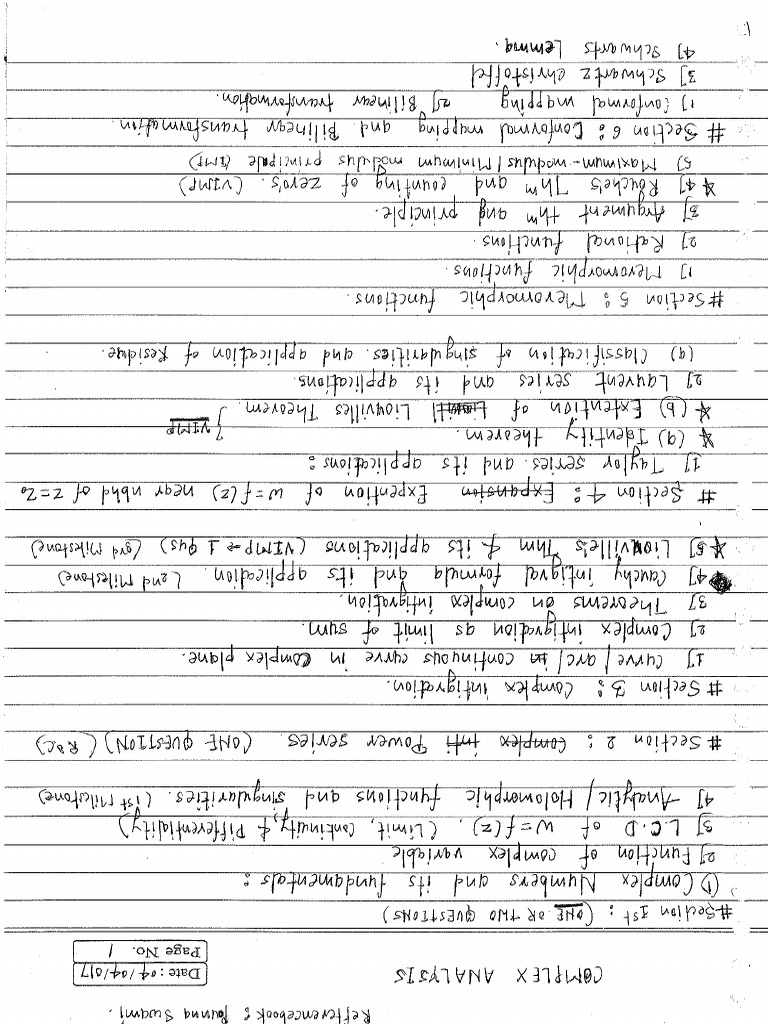 Refferencebook : Punna Swami.
COMPLEX ANALYSIS
Date : 04/04/017
Page No. 1
# Section 1st : (ONE OR TWO QUESTIONS)
① Complex Numbers and its fundamentals :
2] Function of complex variable
3] L.C.D. of w=f(z). (Limit, continuity & Differentiality)
4] Analytic/Holomorphic functions and singularities. (1st Milestone)
# Section 2 : Complex inti Power series. (ONE QUESTION) (ROC)
# Section 3 : Complex intigration.
1] curve/arc/in continuous curve in complex plane.
2] Complex intigration as limit of sum.
3] Theorems on complex intigration.
4] Cauchy intigral formula and its application. (2nd Milestone)
*5] Liouville's Thm & its applications (VIMP → 1 Qus) (3rd Milestone)
# Section 4 : Expansion Expention of w=f(z) near nbhd of z=z0
1] Taylor series and its applications :
* (a) Identity theorem.
* (b) Extention of Liouvilles Theorem. } VIMP
2] Laurent series and its applications.
(a) Classification of singularities and application of Residue.
# Section 5 : Meromorphic functions.
1] Meromorphic functions.
2] Rational functions.
3] Argument thm and principle.
*4] Rouche's Thm and counting of zero's. (VIMP)
5] Maximum-modulus/Minimum modulus principale (IMP)
# Section 6 : Conformal mapping and Bilinear transformation.
1] Conformal mapping 2] Bilinear transformation.
3] Schwartz christoffel
4] Schwarts Lemma.